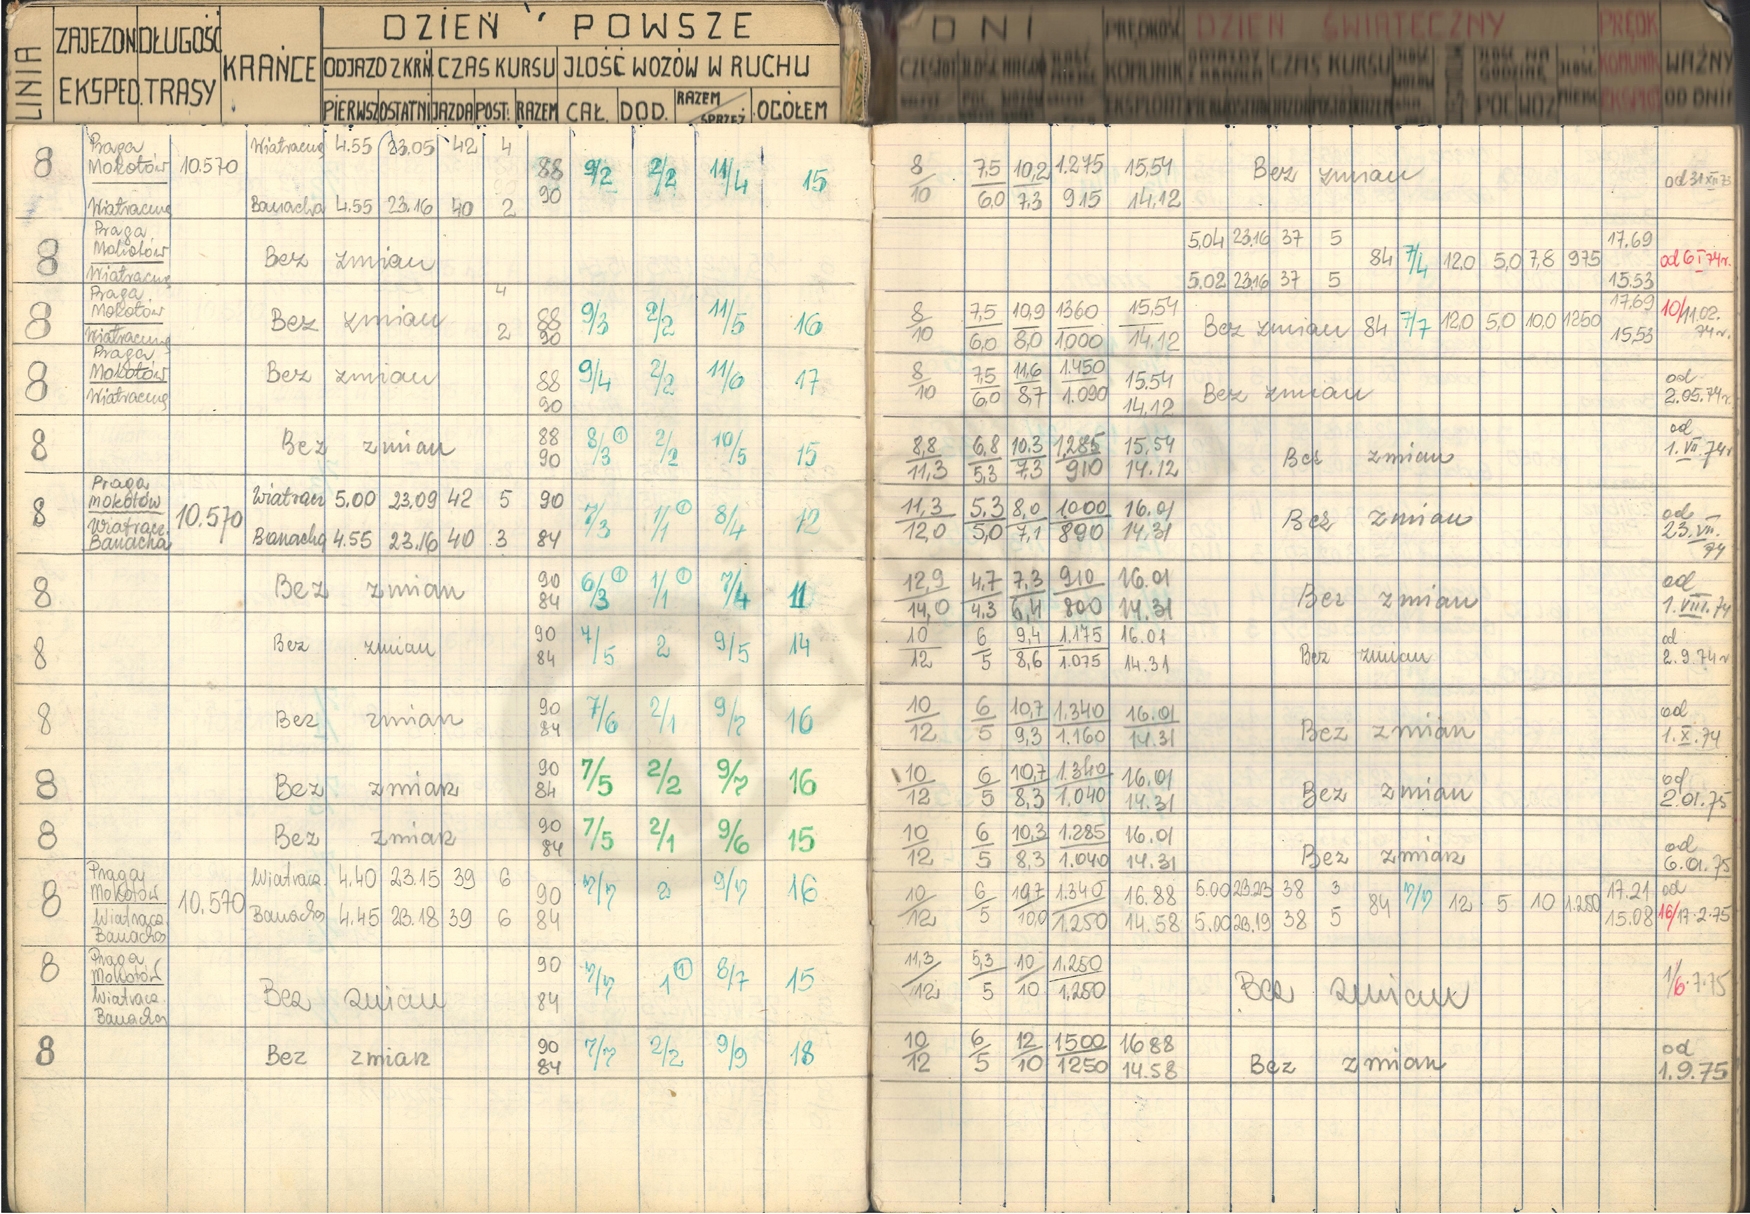 LINIA ZAJEZDN. EKSPED. DŁUGOŚĆ TRASY KRAŃCE DZIEŃ POWSZE DNI DZIEŃ ŚWIATECZNY
ODJAZD Z KRŃ CZAS KURSU JLOŚĆ WOZÓW W RUCHU
PIERWSZ OSTATNI JAZDA POST. RAZEM CAŁ. DOD. RAZEM SPRZĘŻ OGÓŁEM
PRĘDKOŚĆ KOMUNIK EKSPLOAT CZAS KURSU PRĘDK KOMUNIK WAŻNY OD DNIA
8 Praga Mokotów Wiatraczna 10.570 Wiatraczna 4.55 23.05 42 4 88 9/2 2/2 11/4 15 8/10 7,5/6,0 10,2/7,3 1.275/915 15,54 14.12 Bez zmian od 31 XII 73
Banacha 4.55 23.16 40 2 90
8 Praga Mokotów Wiatraczna Bez zmian 5.04 23.16 37 5 84 7/4 12,0 5,0 7,8 975 17.69 od 6 I 74r.
5.02 23.16 37 5 15.53
8 Praga Mokotów Wiatraczna Bez zmian 4 2 88 90 9/3 2/2 11/5 16 8/10 7,5/6,0 10,9/8,0 1360/1.000 15,54 14.12 Bez zmian 84 7/7 12,0 5,0 10,0 1250 17,69 15,53 10/11.02.74r.
8 Praga Mokotów Wiatraczna Bez zmian 88 90 9/4 2/2 11/6 17 8/10 7,5/6,0 11,6/8,7 1.450/1.090 15.54 14.12 Bez zmian od 2.05.74r.
8 Bez zmian 88 90 8/3 ① 2/2 10/5 15 8,8/11,3 6,8/5,3 10,3/7,3 1.285/910 15,54 14.12 Bez zmian od 1.VII.74r
8 Praga Mokotów Wiatracz. Banacha 10.570 Wiatracz 5.00 23.09 42 5 90 7/3 1/1 ① 8/4 12 11,3/12,0 5,3/5,0 8,0/7,1 1000/890 16.01 14.31 Bez zmian od 23.VII.74
Banacha 4.55 23.16 40 3 84
8 Bez zmian 90 84 6/3 ① 1/1 ① 7/4 11 12,9/14,0 4,7/4,3 7,3/6,4 910/800 16.01 14.31 Bez zmian od 1.VIII.74
8 Bez zmian 90 84 7/5 2 9/5 14 10/12 6/5 9,4/8,6 1.175/1.075 16.01 14.31 Bez zmian od 2.9.74r
8 Bez zmian 90 84 7/6 2/1 9/7 16 10/12 6/5 10,7/9,3 1.340/1.160 16.01 14.31 Bez zmian od 1.X.74
8 Bez zmian 90 84 7/5 2/2 9/7 16 10/12 6/5 10,7/8,3 1.340/1.040 16.01 14.31 Bez zmian od 2.01.75
8 Bez zmian 90 84 7/5 2/1 9/6 15 10/12 6/5 10,3/8,3 1.285/1.040 16.01 14.31 Bez zmian od 6.01.75
8 Praga Mokotów Wiatracz. Banacha 10.570 Wiatracz. 4.40 23.15 39 6 90 7/7 2 9/7 16 10/12 6/5 10,7/10,0 1.340/1.250 16.88 14.58 5.00 23.23 38 3 84 7/7 12 5 10 1.250 17.21 15.08 od 16/17.2.75
Banacha 4.45 23.18 39 6 84 5.00 23.19 38 5
8 Praga Mokotów Wiatracz. Banacha Bez zmian 90 84 7/7 1 ① 8/7 15 11,3/12 5,3/5 10/10 1.250/1.250 Bez zmian 1/6.7.75
8 Bez zmian 90 84 7/7 2/2 9/9 18 10/12 6/5 12/10 1500/1250 1688 14.58 Bez zmian od 1.9.75